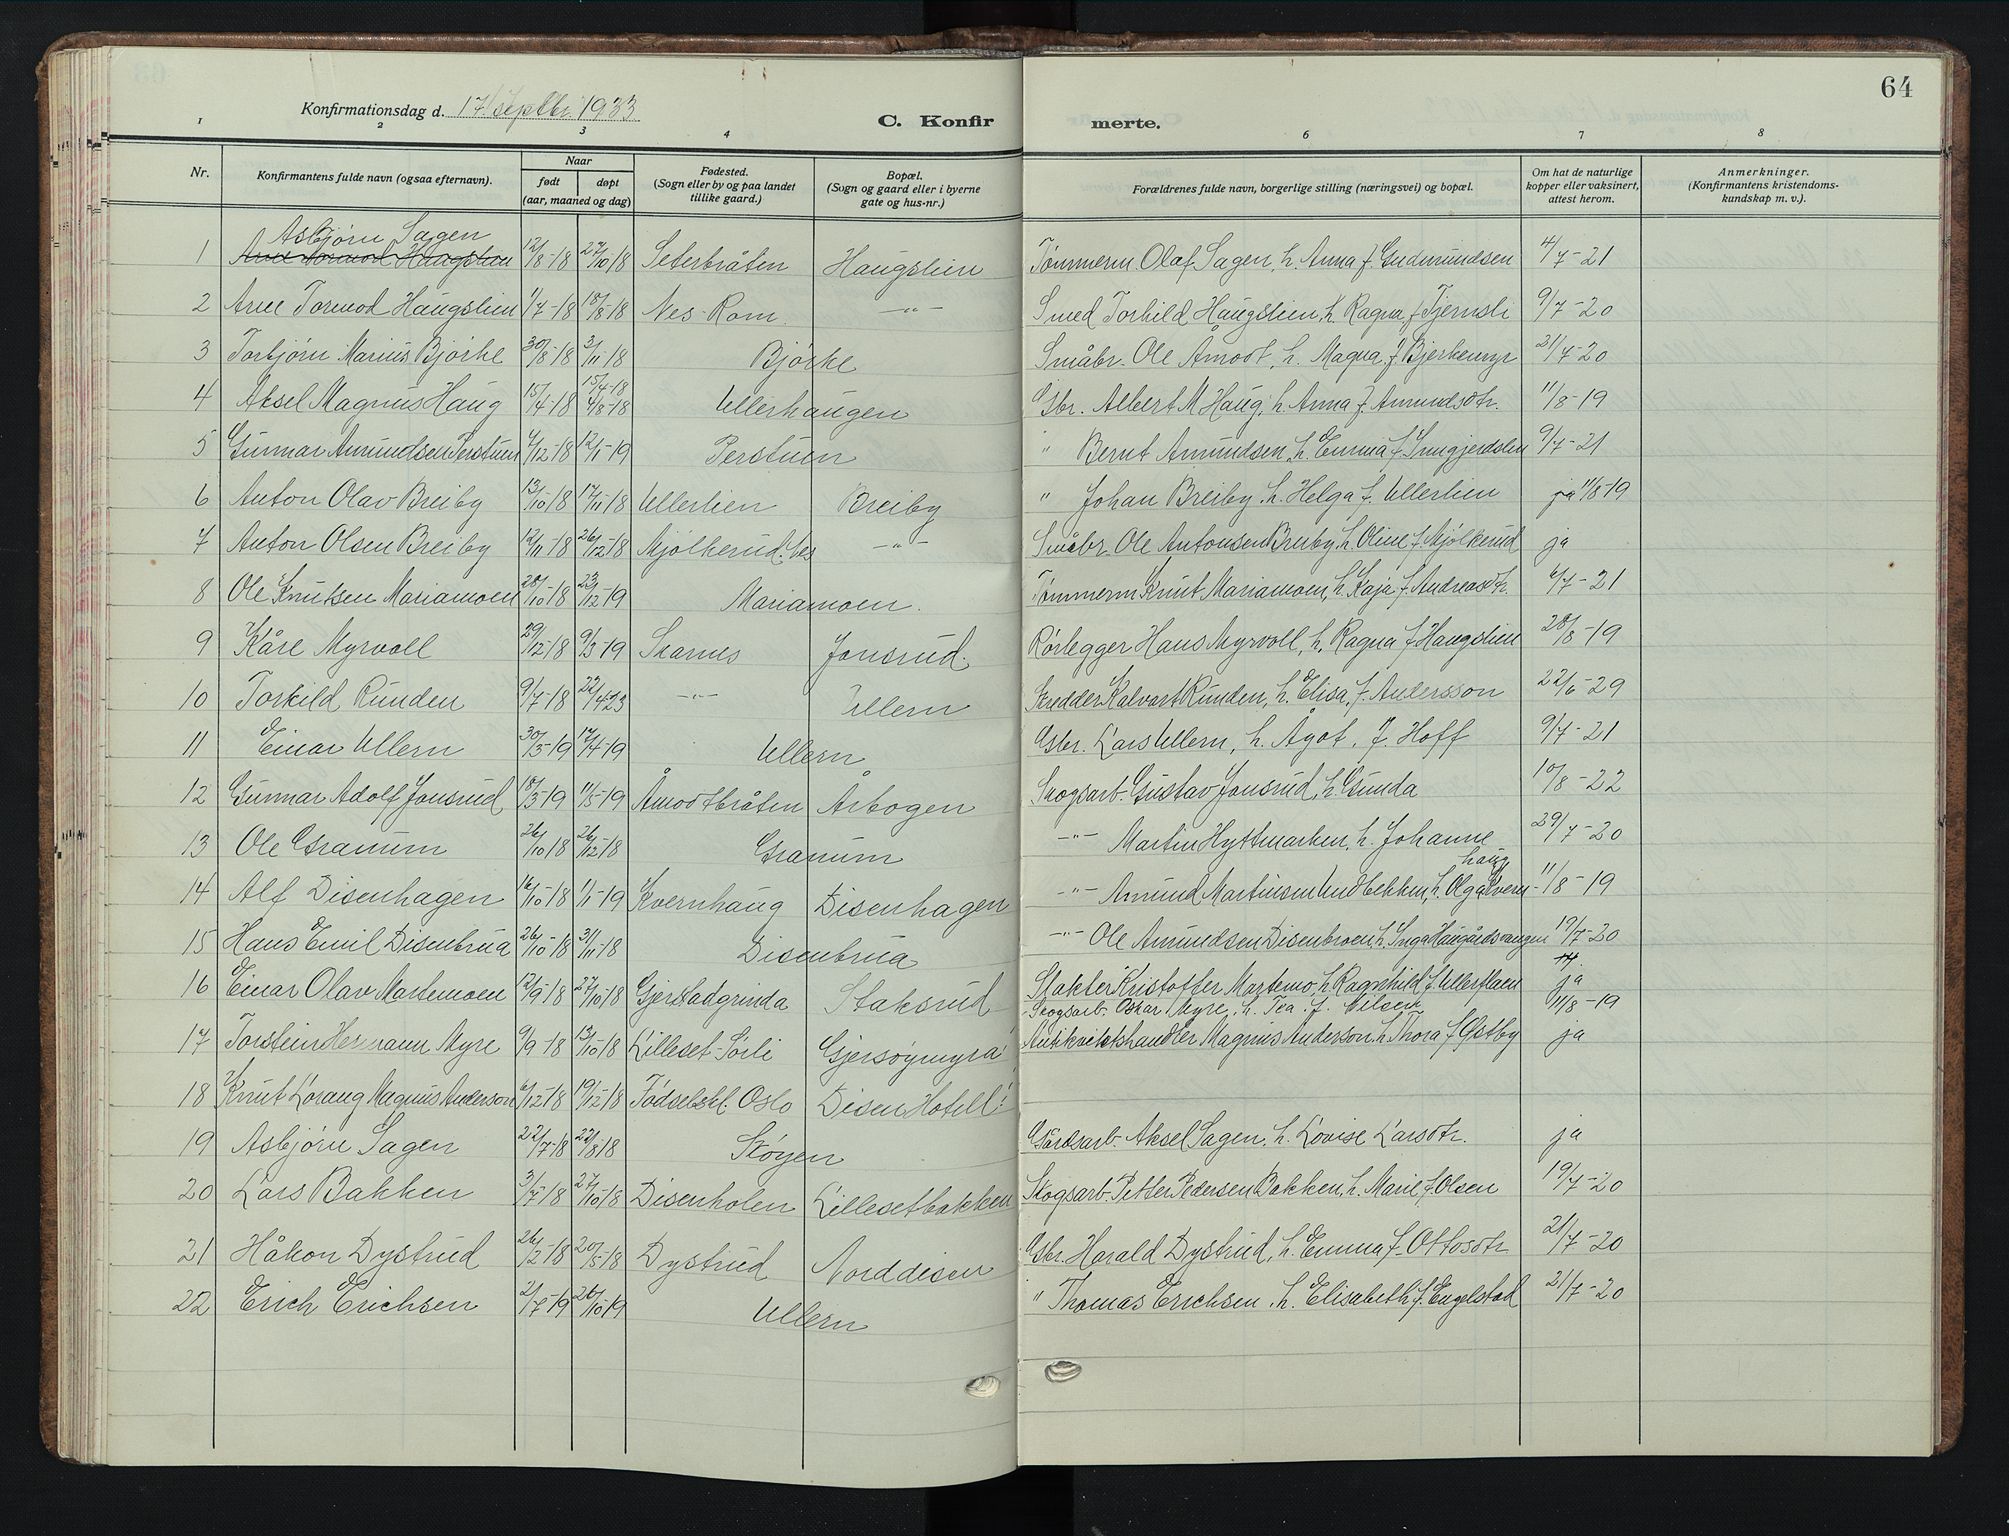 64
Konfirmationsdag d. 17. septbr. 1933
C. Konfirmerte.
1 2 3 4 6 7 8
Nr. Konfirmantens fulde navn (ogsaa efternavn). Naar født døpt (aar, maaned og dag) Fødested. (Sogn eller by og paa landet tillike gaard.) Bopæl. (Sogn og gaard eller i byerne gate og hus-nr.) Forældrenes fulde navn, borgerlige stilling (næringsvei) og bopæl. Om hat de naturlige kopper eller vaksinert, attest herom. Anmerkninger. (Konfirmantens kristendomskundskap m. v.).
Asbjørn Sagen
1 Arne Tormod Haugslien 12/8-18 27/10 18 Seterbråten Haugslien Tømmerm. Olaf Sagen, h. Anna f. Gudmundsen 4/7-21
2 Arne Tormod Haugslien 1/7-18 18/8-18 Nes. Rom. -"- Smed Torkild Haugslien, h. Ragna f. Tjernsli 9/7-20
3 Torbjørn Marius Bjørke 30/8-18 3/11-18 Bjørke Småbr. Ole Åmodt, h. Magna f. Bjerkemyr 21/7-20
4 Aksel Magnus Haug 15/4-18 15/4-18 4/8-18 Ullerhaugen Gbr. Albert M Haug, h. Anna f. Amundsdtr. 11/8-19
5 Gunnar Amundsen Perstuen 4/12-18 12/1-19 Perstuen " Bernt Amundsen, h. Emma f. 9/7-21
6 Anton Olav Breiby 13/10 18 17/11 18 Ullerlien Breiby " Johan Breiby, h. Helga f. Ullerlien ja 11/8-19
7 Anton Olsen Breiby 12/11-18 26/12-18 Mjølkerud. Nes -"- Småbr. Ole Antonsen Breiby, h. Oline f. Mjølkerud ja
8 Ole Knutsen Mariamoen 28/10-18 23/12-19 Mariamoen. Tømmerm Knut Mariamoen, h. Kaja f. Andreasdtr. 6/7-21
9 Kåre Myrvoll 29/12-18 9/3-19 Skarnes Jonsrud. Rørlegger Hans Myrvoll, h. Ragna f. Haugslien 28/8-19
10 Torkild Runden 9/7-18 22/4 23 -"- Ullern Skredder Kalvart Runden, h. Elisa, f. Andersson 22/6-29
11 Einar Ullern 30/3-19 17/4-19 Ullern Gbr. Lars Ullern, h. Ågot. f. Hoff 9/7-21
12 Gunnar Adolf Jonsrud 18/3-19 11/5-19 Åmodtbråten Årbogen Skogsarb. Gustav Jonsrud, h. Gunda 10/8-22
13 Ole Granum 26/10 18 26/12 18 Granum -"- Martin Hyttmarken, h. Johanne 29/7-20
14 Alf Disenhagen 16/10-18 1/1-19 Kvernhaug Disenhagen -"- Amund Martinsen Lindbekken, h. Olga Kvernhaug 11/8-19
15 Hans Emil Disenbrua 26/10-18 3/11-18 Disenbrua -"- Ole Amundsen Disenbroen h. Inga Haugårdsvangen 19/7-20
16 Einar Olav Martemoen 12/9-18 27/10 18 Gjerstadgrinda Staksrud Slakter Kristoffer Martemo, h. Ragnhild f. Ullerfloen ja
Skogsarb. Oskar Myre, h. Tea. f. Nilsen 11/8-19
17 Torstein Hermann Myre 9/9-18 13/10-18 Lilleset-Sørli Gjersøymyra Antikvitetshandler Magnus Anderson h. Thora f. Østby ja
18 Knut Lorang Magnus Anderson 6/12-18 19/12-18 Fødselskl. Oslo Disen Hotell
19 Asbjørn Sagen 22/7-18 22/8 18 Skøyen Gårdsarb. Aksel Sagen. h. Lovise Larsdtr. ja
20 Lars Bakken 3/7-18 27/10 18 Disenholen Lillesetbakken Skogsarb. Petter Pedersen Bakken, h. Marie f. Olsen 19/7-20
21 Håkon Dystrud 26/2-18 20/5 18 Dystrud Norddisen Gbr. Harald Dystrud, h. Emma f. Ottosdtr 21/7-20
22 Erich Erichsen 2/7-19 26/10 19 Ullern " Thomas Erichsen. h. Elisabeth f. Engelstad 21/7-20